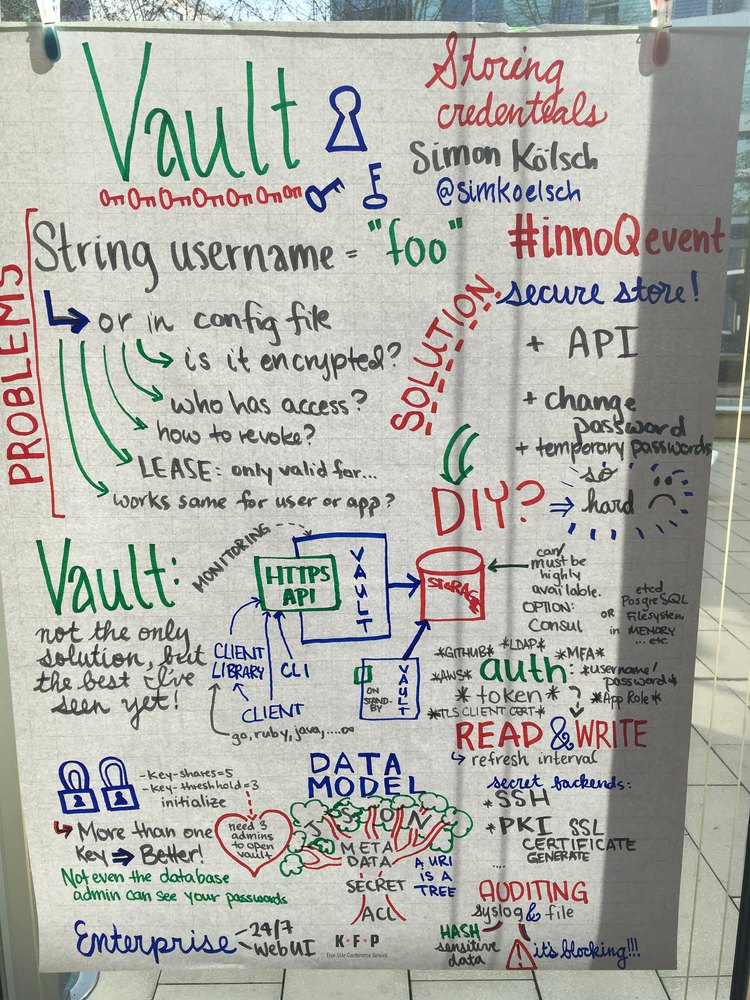 Vault
Storing
credenteals
Simon Kölsch
@simkoelsch
#innoQevent
PROBLEMS
String username = "foo"
or in config file
is it encrypted?
who has access?
how to revoke?
LEASE: only valid for...
works same for user or app?
SOLUTION
secure store!
+ API
+ change
password
+ temporary passwords
DIY?
⇒ so
hard
Vault:
not the only
solution, but
the best I've
seen yet!
MONITORING
HTTPS
API
VAULT
STORAGE
can/
must be
highly
available.
OPTION:
Consul
OR
etcd
PosgreSQL
Filesystem
in MEMORY
... etc.
CLIENT
LIBRARY
CLI
CLIENT
go, ruby, java, .....
ON
STAND-
BY
VAULT
auth:
*GITHUB*
*LDAP*
*MFA*
*AWS*
*username/
password*
*token*
?
*App Role*
*TLS CLIENT CERT*
READ & WRITE
refresh interval
secret backends:
*SSH
*PKI SSL
CERTIFICATE
GENERATE
....
-key-shares=5
-key-threshhold=3
initialize
More than one
Key ⇒ Better!
need 3
admins
to open
vault
Not even the database
admin can see your passwords
DATA
MODEL
JSON
META
DATA
SECRET
ACL
A URI
IS A
TREE
AUDITING
syslog & file
HASH
sensitive
data
! it's blocking!!!
Enterprise
24/7
WebUI
K·F·P
Five Star Conference Service